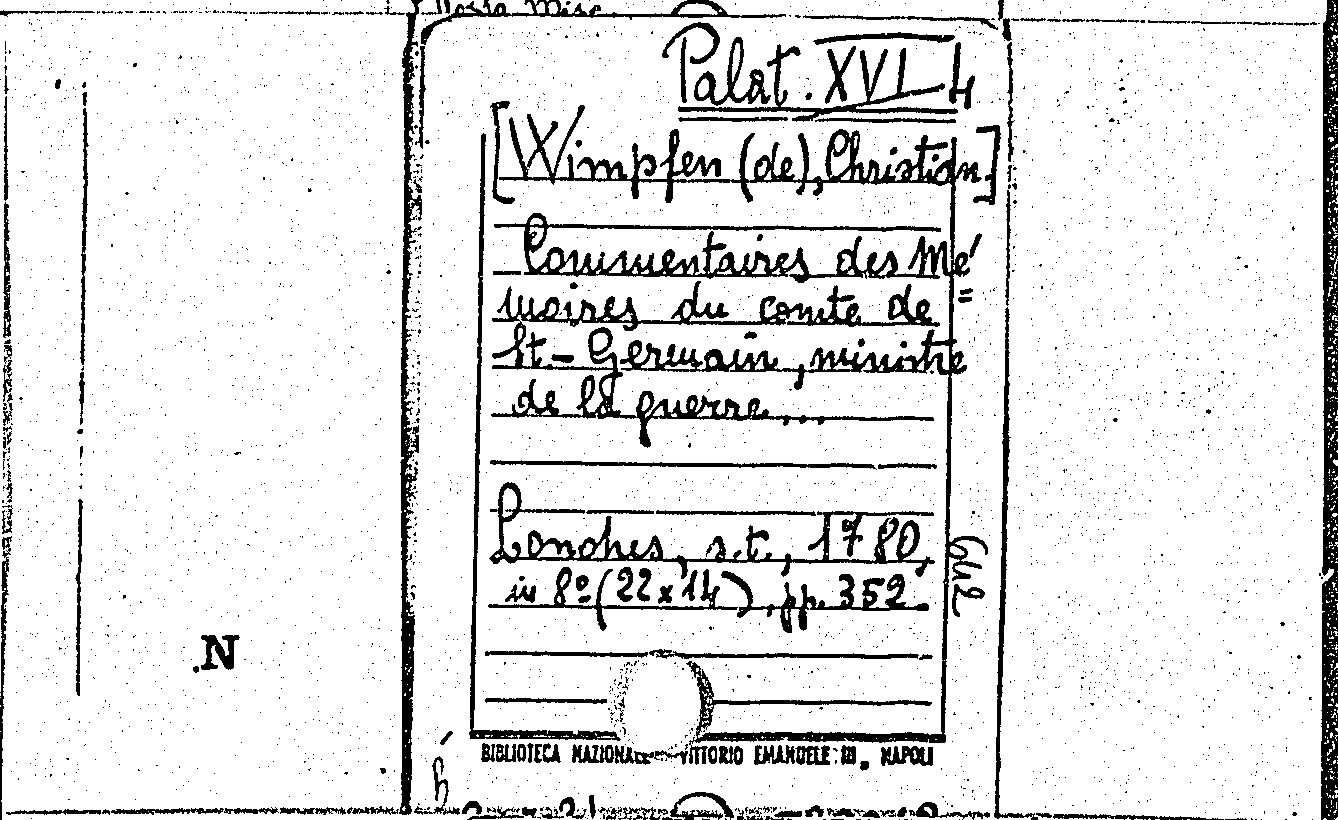 Palat. XVI 4
[Wimpfen (de), Christian.]
Commentaires des Mé=
moires du comte de
St.-Germain, ministre
de la guerre...
Londres, s.t., 1780,
in 8º (22x14), pp. 352.
N
BIBLIOTECA NAZIONALE VITTORIO EMANUELE III. NAPOLI